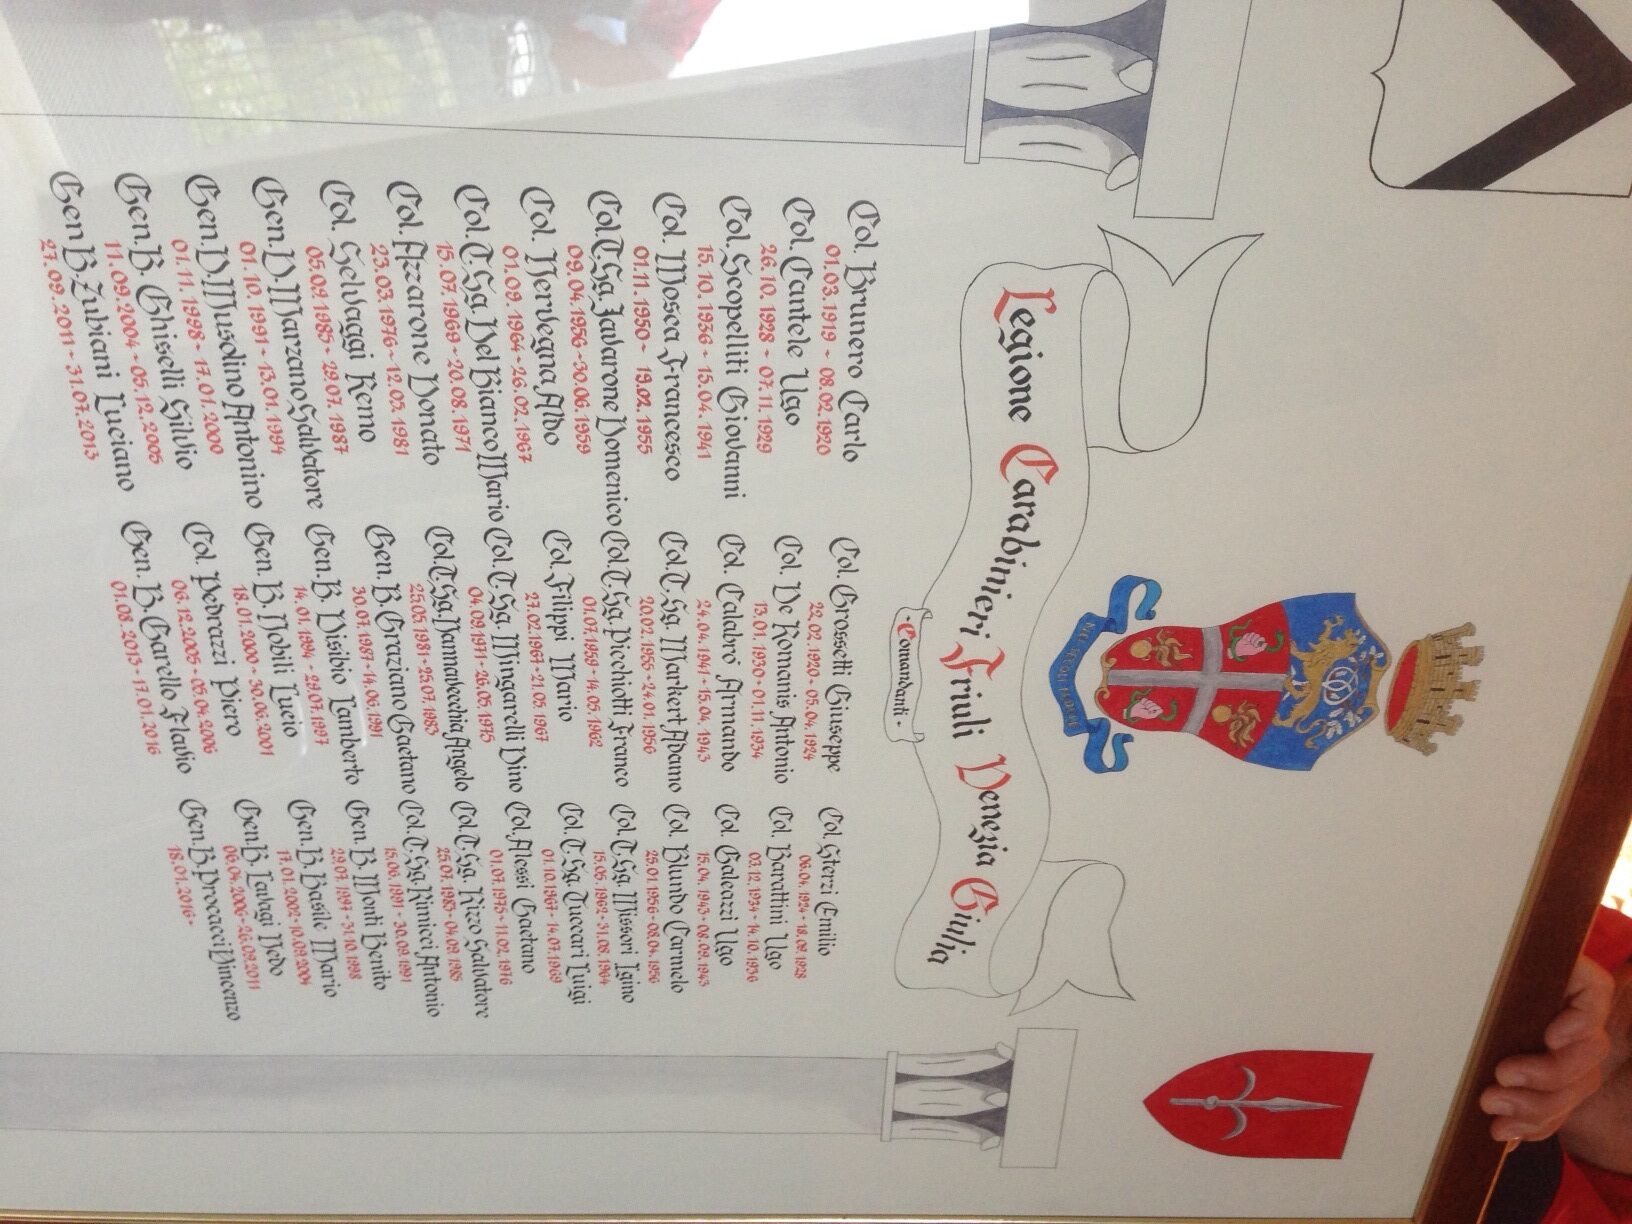 NEI SECOLI FEDELE
Legione Carabinieri Friuli Venezia Giulia
·Comandanti·
Col. Brunero Carlo Col. Grossetti Giuseppe Col. Sterzi Emilio
01.03.1919 - 08.02.1920 22.02.1920-05.04.1924 06.04.1924-18.09.1928
Col. Cantele Ugo Col. De Romanis Antonio Col. Barattini Ugo
26.10.1928 - 07.11.1929 13.01.1930-01.11.1934 03.12.1934-14.10.1936
Col. Scopelliti Giovanni Col. Calabrò Armando Col. Galeazzi Ugo
15.10.1936 - 15.04.1941 24.04.1941-15.04.1943 15.04.1943-08.09.1943
Col. Mosca Francesco Col.T.Sg. Markert Adamo Col. Blundo Carmelo
01.11.1950 - 19.02.1955 20.02.1955-24.01.1956 25.01.1956-08.04.1956
Col.T.Sg. Javarone Domenico Col.T.Sg. Picchiotti Franco Col.T.Sg. Missori Igino
09.04.1956-30.06.1959 01.07.1959-14.05.1962 15.05.1962-31.08.1964
Col. Nervegna Aldo Col. Filippi Mario Col.T.Sg. Tuccari Luigi
01.09.1964-26.02.1967 27.02.1967-21.05.1967 01.10.1967-14.07.1969
Col.T.Sg. Del Bianco Mario Col.T.Sg. Mingarelli Dino Col. Alessi Gaetano
15.07.1969-20.08.1971 04.09.1971-26.05.1975 01.07.1975-11.02.1976
Col. Azzarone Donato Col.T.Sg. Mannavecchia Angelo Col.T.Sg. Rizzo Salvatore
23.03.1976-12.05.1981 25.05.1981-25.07.1983 25.07.1983-04.09.1985
Col. Selvaggi Remo Gen. B. Graziano Gaetano Col.T.Sg. Rimicci Antonio
05.09.1985-29.07.1987 30.07.1987-14.06.1991 15.06.1991-30.09.1991
Gen. D. Marzano Salvatore Gen. B. Disibio Lamberto Gen. B. Monti Benito
01.10.1991-13.01.1994 14.01.1994-29.07.1997 29.07.1997-31.10.1998
Gen. D. Musolino Antonino Gen. B. Nobili Lucio Gen. B. Basile Mario
01.11.1998-17.01.2000 18.01.2000-30.06.2001 17.01.2002-10.09.2004
Gen. B. Ghiselli Silvio Col. Pedrazzi Piero Gen. B. Lavagi Dedo
11.09.2004-05.12.2005 06.12.2005-05.04.2006 06.04.2006-26.09.2011
Gen. B. Zubiani Luciano Gen. B. Garello Flavio Gen. B. Procacci Vincenzo
27.09.2011-31.07.2013 01.08.2013-17.01.2016 18.01.2016-